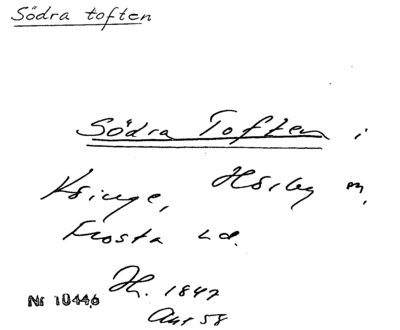 Södra toften
Södra Toften i
Kringe, Hörby sn,
Frosta hd.
Jh. 1847
Akt 58
Nr 10446